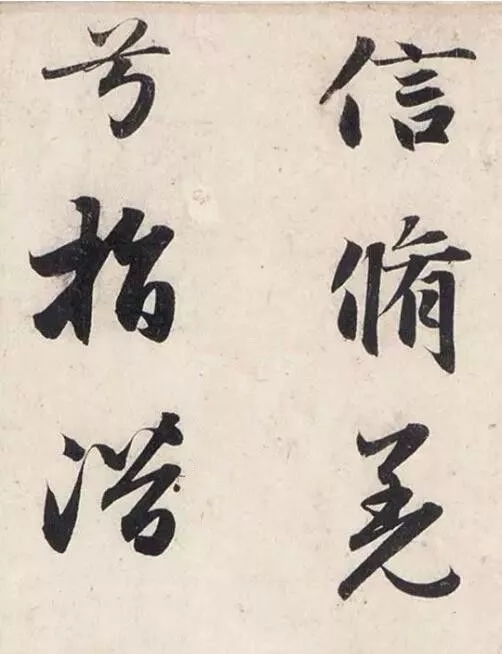 信脩羌
兮指潛